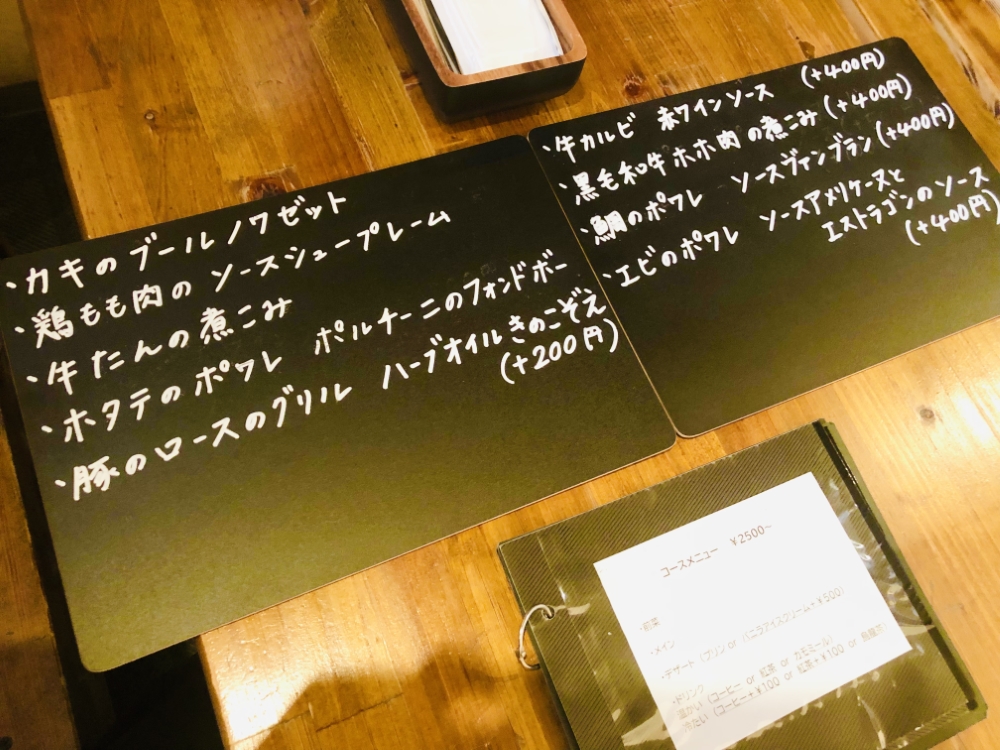 ・カキのブールノワゼット
・鶏もも肉のソースシュープレーム
・牛たんの煮こみ
・ホタテのポワレ ポルチーニのフォンドボー
・豚のロースのグリル ハーブオイルきのこぞえ
(+200円)
・牛カルビ 赤ワインソース (+400円)
・黒毛和牛ホホ肉の煮こみ (+400円)
・鯛のポワレ ソースヴァンブラン (+400円)
・エビのポワレ ソースアメリケーヌと
エストラゴンのソース
(+400円)
コースメニュー ¥2500~
・前菜
・メイン
・デザート (プリン or バニラアイスクリーム+¥500)
・ドリンク
温かい (コーヒー or 紅茶 or カモミール)
冷たい (コーヒー+¥100 or 紅茶+¥100 or 烏龍茶)